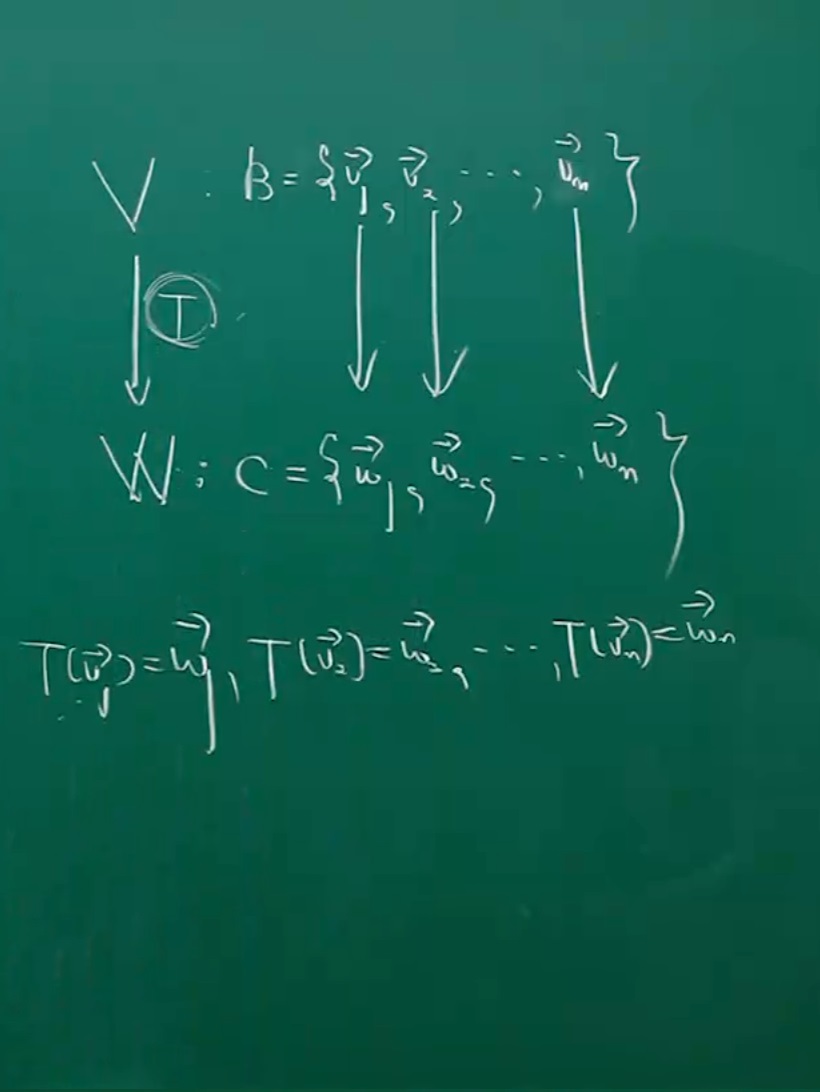 V : B = {v⃗₁, v⃗₂, ···, v⃗ₙ}
T
W : C = {w⃗₁, w⃗₂, ···, w⃗ₙ}
T(v⃗₁) = w⃗₁, T(v⃗₂) = w⃗₂, ···, T(v⃗ₙ) = w⃗ₙ